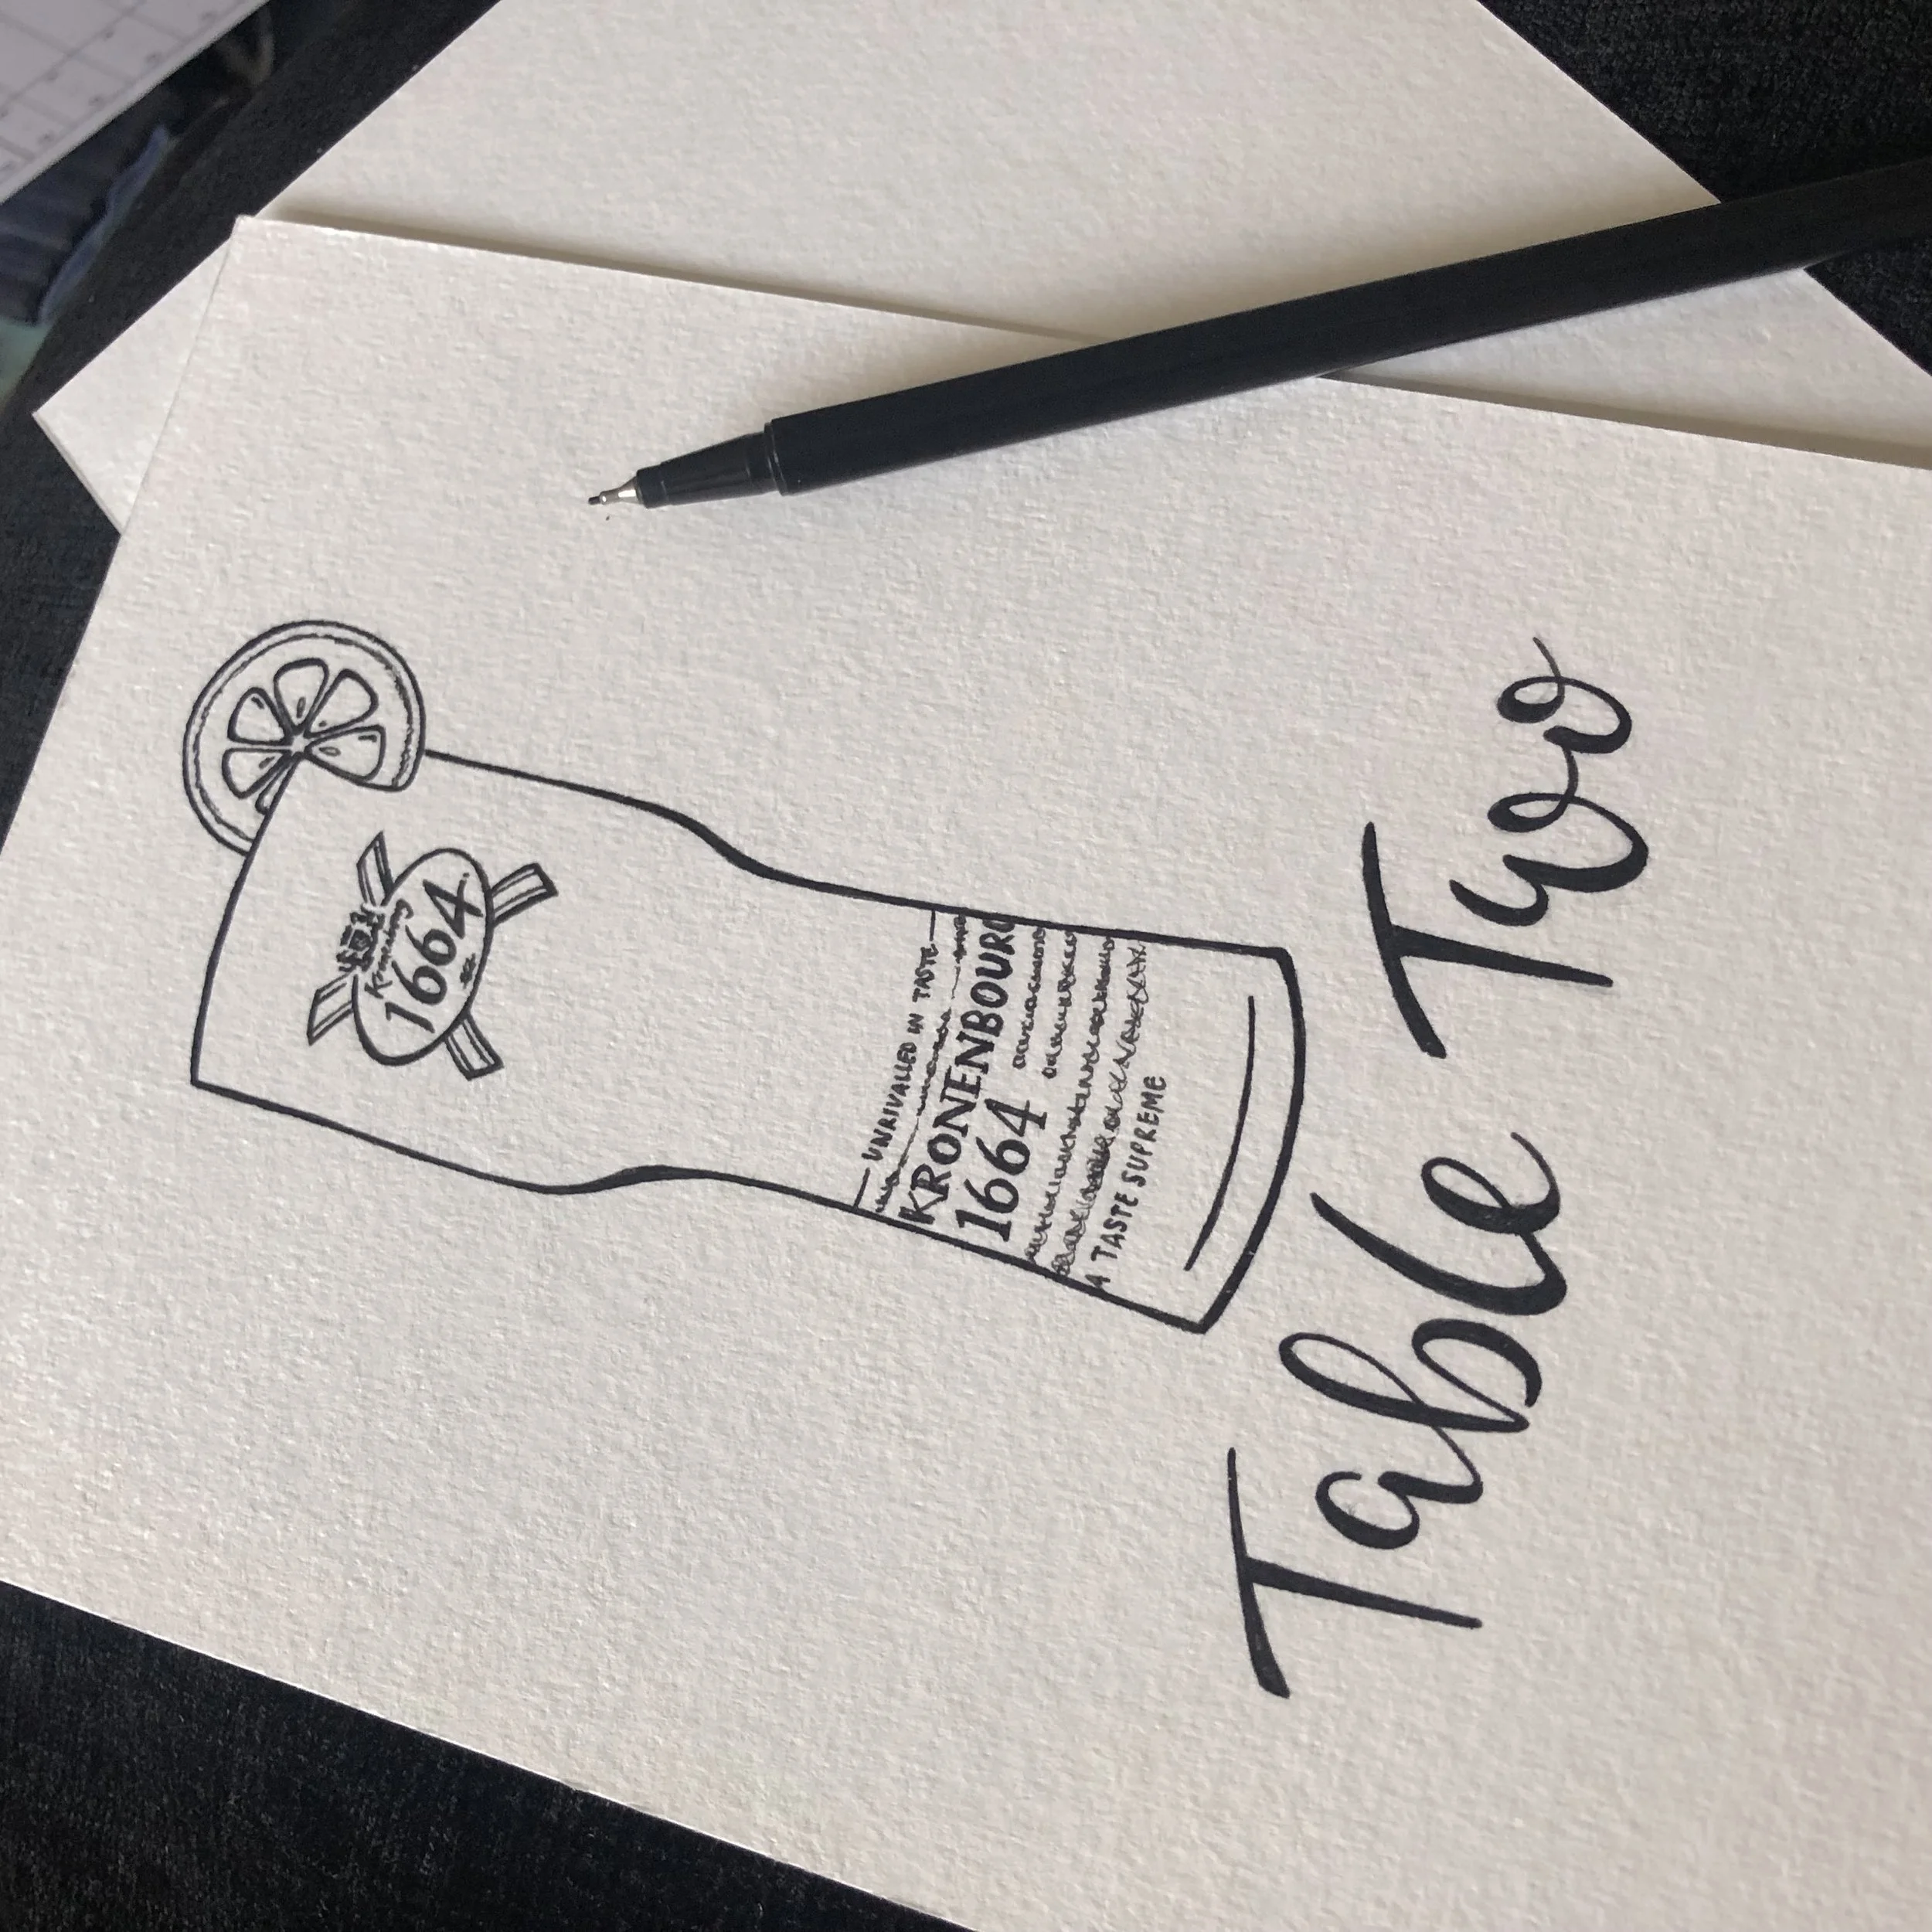 1664
UNRIVALLED IN TASTE
KRONENBOURG
1664
A TASTE SUPREME
Table Two